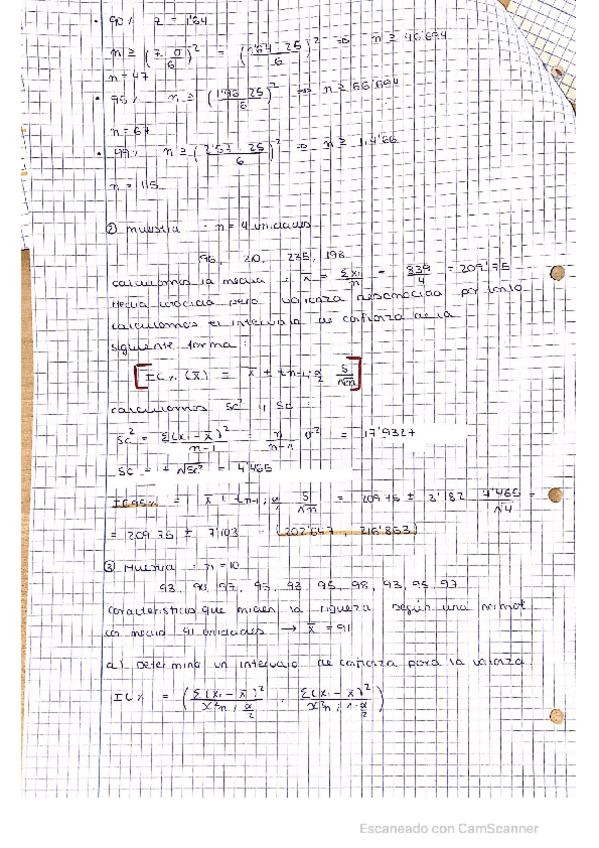 • 90% z = 1'64
n ≥ (z·σ/6)² = (1'64·25/6)² ⇒ n ≥ 46'694
n = 47
• 95% n ≥ (1'96·25/6)² ⇒ n ≥ 66'694
n = 67
• 99% n ≥ (2'57·25/6)² ⇒ n ≥
n = 115
② Muestra · n = 4 unidades
210, 235, 198
calculamos la media: x̄ = Σxi/n = 839/4 = 209'75
Media conocida pero varianza desconocida por tanto
calculamos el intervalo de confianza de la
siguiente forma:
[IC% (x̄) = x̄ ± t n-1; α/2 S/√n]
calculamos Sc² y Sc:
Sc² = Σ(xi - x̄)²/n-1 = n/n-1 σ² = 17'9327
Sc = + √Sc² = 4'465
IC95% = x̄ ± t n-1; α/2 S/√n = 209'75 ± 3'182 4'465/√4 =
= 209'75 ± 7'103 (202'647, 216'853)
③ Muestra · n = 10
93, 90, 97, 95, 93, 95, 98, 93, 95, 93
característica que miden la riqueza según una normal
con media 91 unidades → x̄ = 91
a) Determina un intervalo de confianza para la varianza.
IC% = (Σ(xi - x̄)²/χ²n; α/2, Σ(xi - x̄)²/χ²n; 1-α/2)
Escaneado con CamScanner